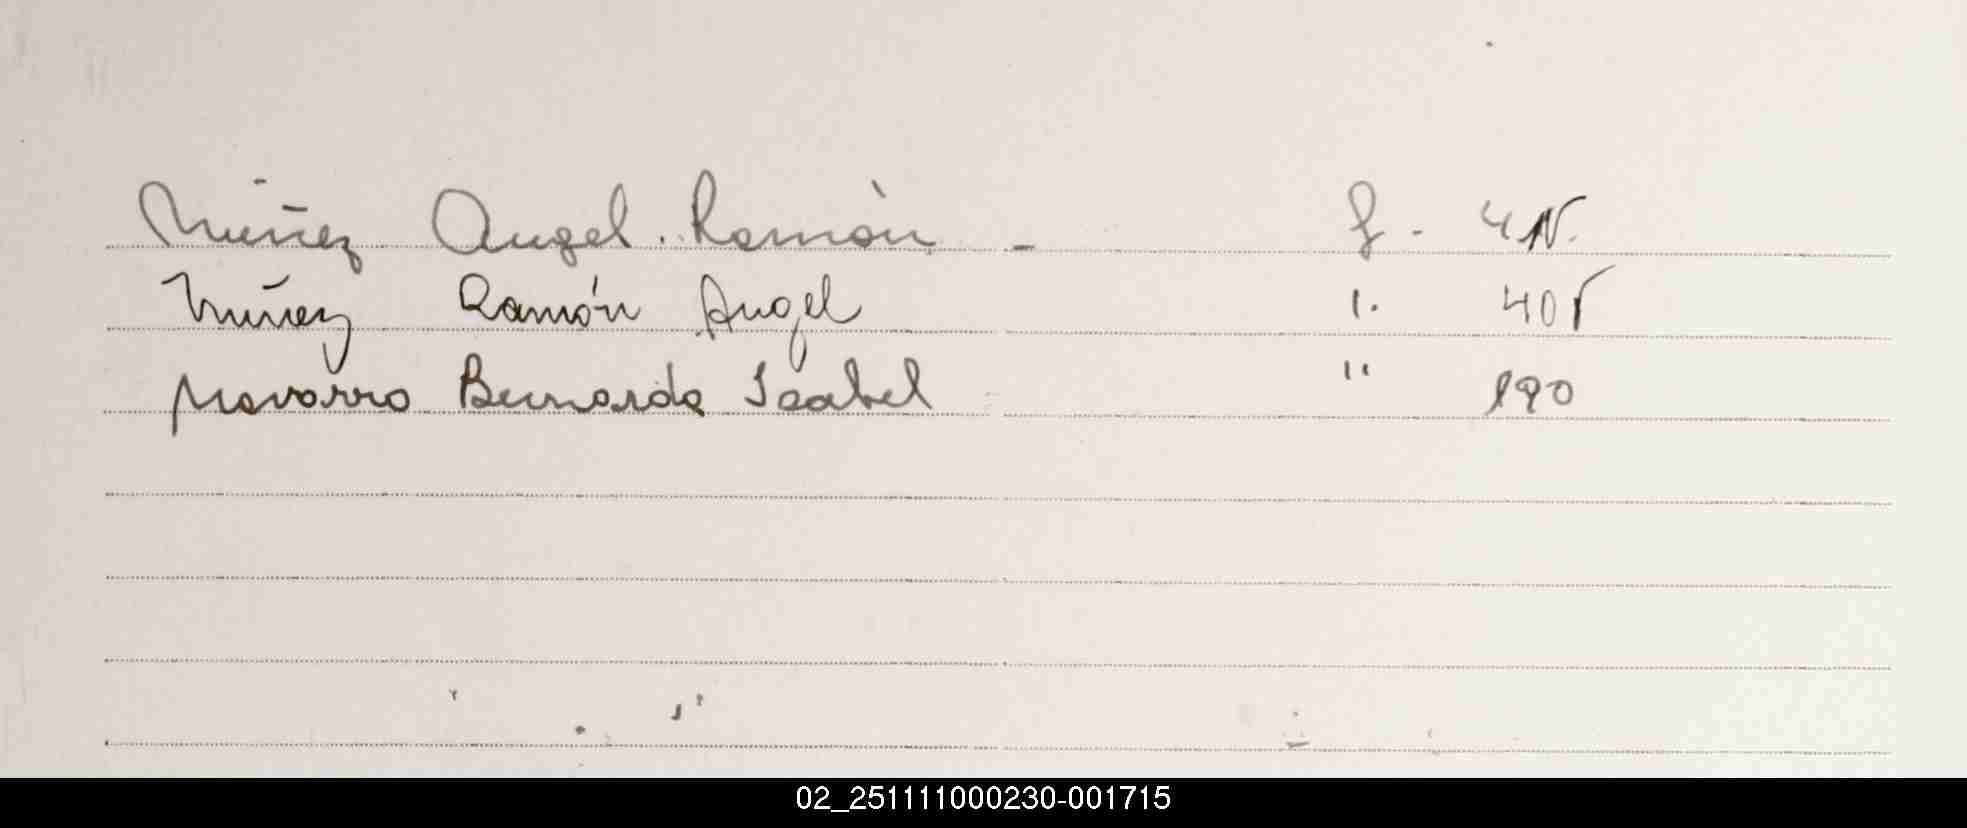 Núñez Angel Ramón - f. 4
Núñez Ramón Angel 1. 405
Navarro Bernarda Isabel " 190
02_251111000230-001715